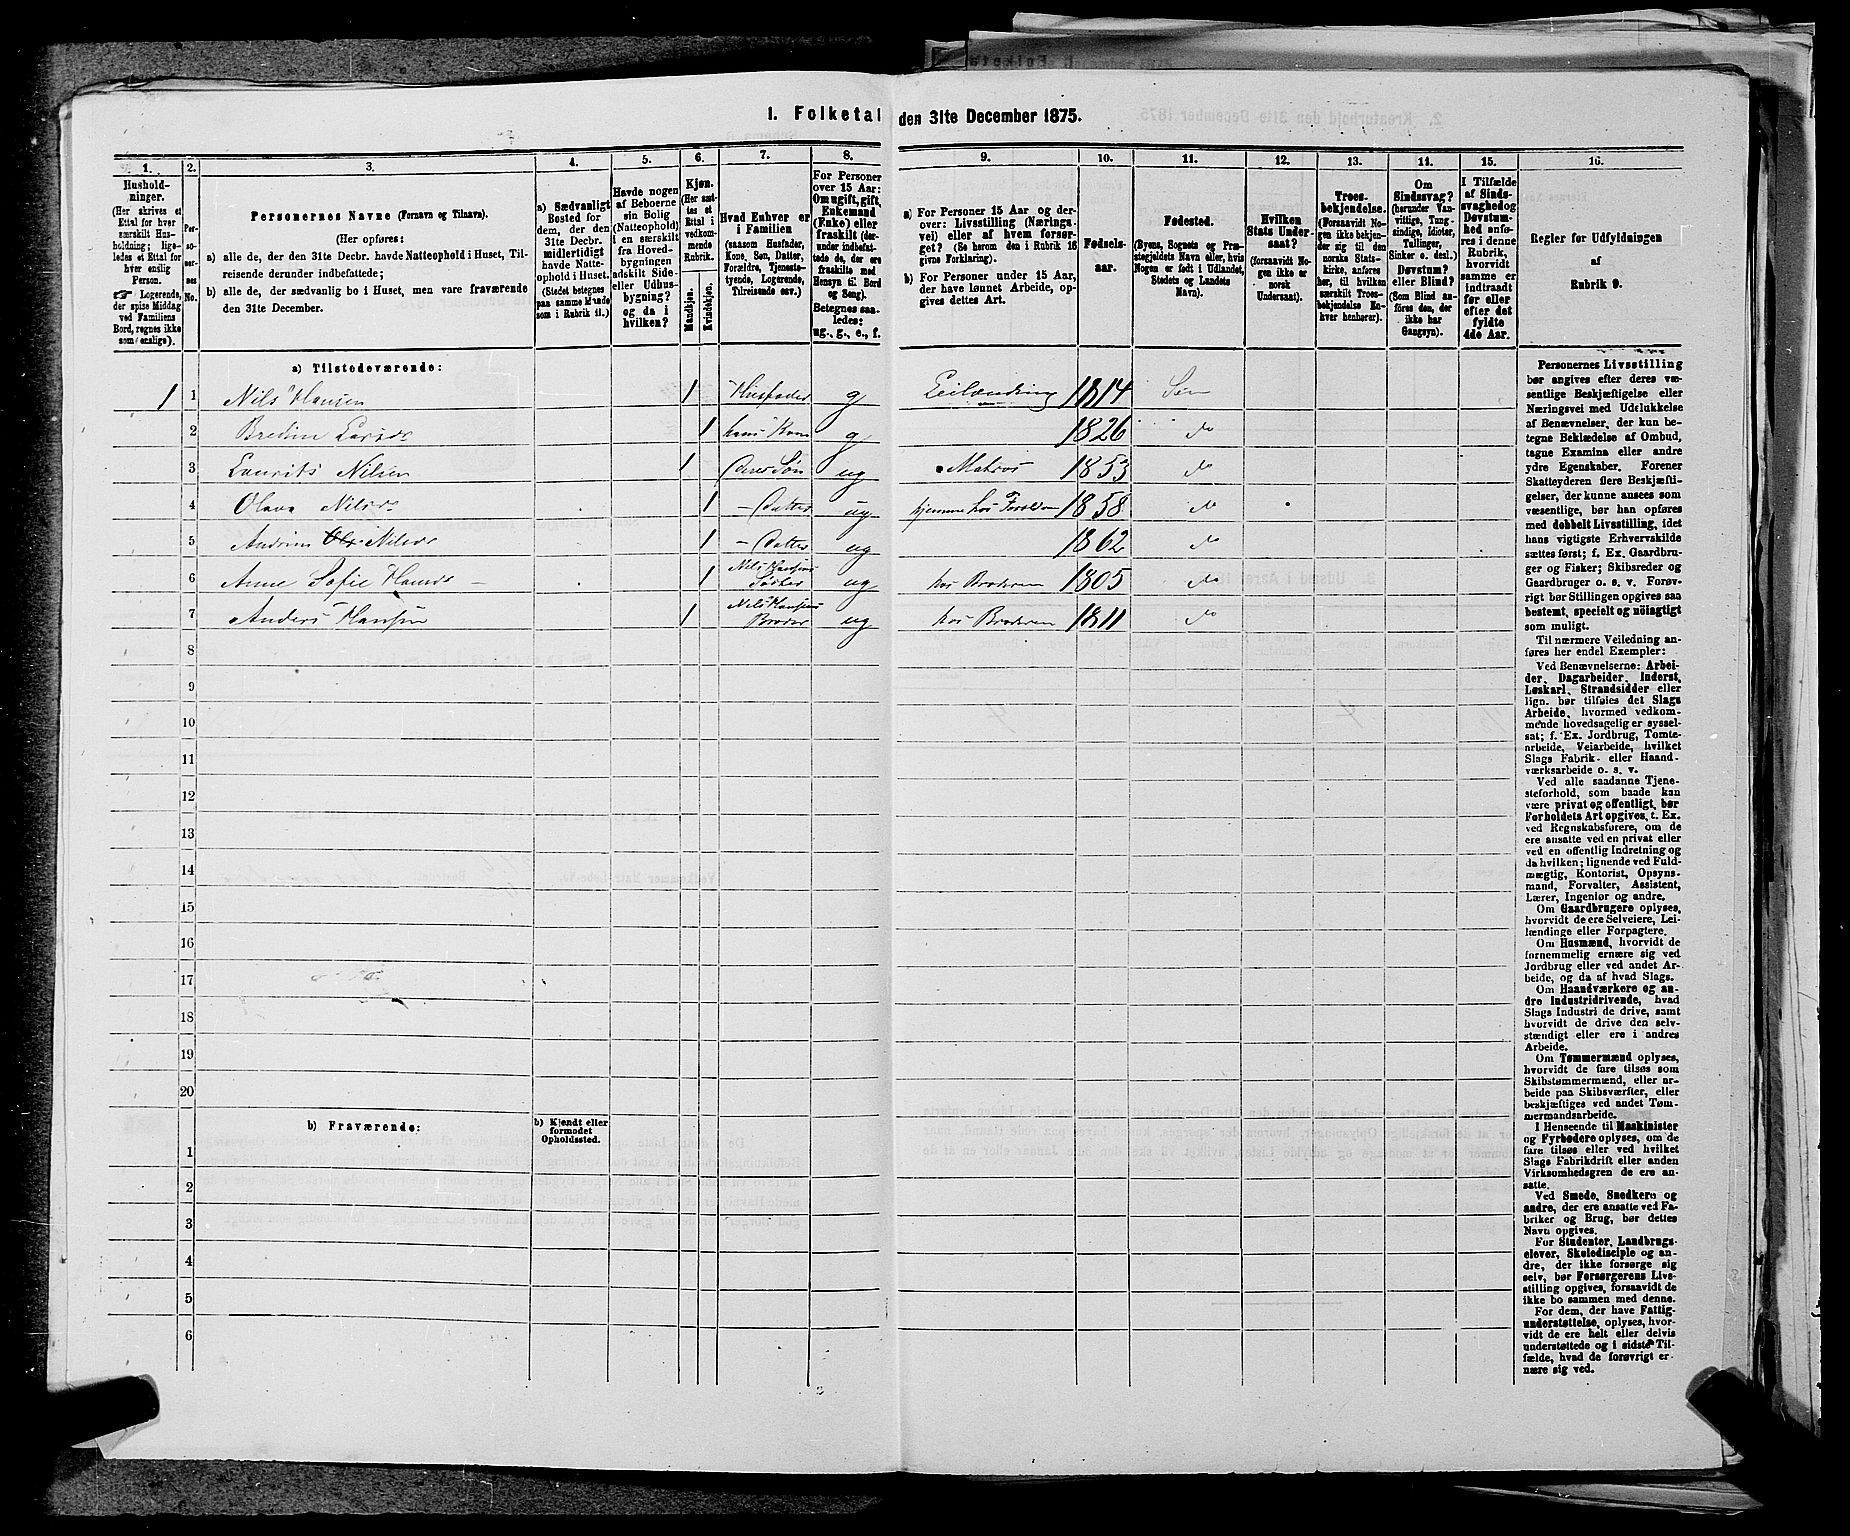 1. Folketal den 31te December 1875.
1. 2. 3. 4. 5. 6. 7. 8. 9. 10. 11. 12. 13. 14. 15. 16.
Hushold-
ninger.
(Her skrives et
Ettal for hver
særskilt Hus-
holdning; lige-
ledes et Ettal for
hver enslig
Person.
☞ Logerende,
der spise Middag
ved Familiens
Bord, regnes ikke
som enslige).
Per-
so-
ner-
nes
No.
Personernes Navne (Fornavn og Tilnavn).
(Her opføres:
a) alle de, der den 31te Decbr. havde Natteophold i Huset, Til-
reisende derunder indbefattede;
b) alle de, der sædvanlig bo i Huset, men vare fraværende
den 31te December.
a) Sædvanligt
Bosted for
dem, der den
31te Decbr.
midlertidigt
havde Natte-
ophold i Huset.
(Stedet betegnes
paa samme Maade
som i Rubrik 11.)
Havde nogen
af Beboerne
sin Bolig
(Natteophold)
i en særskilt
fra Hoved-
bygningen
adskilt Side-
eller Udhus-
bygning?
og da i
hvilken?
Kjøn.
(Her sæt-
tes et
Ettal i
vedkom-
mende
Rubrik.
Mandkjøn.
Kvindekjøn.
Hvad Enhver er
i Familien
(saasom Husfader,
Kone, Søn, Datter,
Forældre, Tjeneste-
tyende, Logerende,
Tilreisende osv.)
For Personer
over 15 Aar:
Om ugift, gift,
Enkemand
(Enke) eller
fraskilt (der-
under indbefat-
tede de, der ere
fraskilte med
Hensyn til Bord
og Seng).
Betegnes saa-
ledes:
ug., g., e., f.
a) For Personer 15 Aar og der-
over: Livsstilling (Nærings-
vei) eller af hvem forsør-
get? (Se herom den i Rubrik 16
givne Forklaring).
b) For Personer under 15 Aar,
der have lønnet Arbeide, op-
gives dettes Art.
Fødsels-
aar.
Fødested.
(Byens, Sognets og Præ-
stegjeldets Navn eller, hvis
Nogen er født i Udlandet,
Stedets og Landets
Navn).
Hvilken
Stats Under-
saat?
(forsaavidt No-
gen ikke er
norsk
Undersaat).
Troes-
bekjendelse.
(Forsaavidt No-
gen ikke bekjen-
der sig til den
norske Stats-
kirke, anføres
her, til hvilken
særskilt Troes-
bekjendelse En-
hver henhører).
Om
Sindssvag?
(herunder Van-
vittige, Tung-
sindige, Idioter,
Tullinger,
Sinker o. desl.)
Døvstum?
eller Blind?
(Som Blind an-
føres den, der
ikke har
Gangsyn).
I Tilfælde
af Sinds-
svaghed og
Døvstum-
hed anfø-
res i denne
Rubrik,
hvorvidt
samme er
indtraadt
før eller
efter det
fyldte
4de Aar.
Regler for Udfyldningen
af
Rubrik 9.
a) Tilstedeværende:
1 1 Nils Hansen 1 Husfader g Leilænding 1814 Sem
2 Bredine Larsd. 1 hans Kone g 1826 do
3 Laurits Nilsen 1 deres Søn ug Matros 1853 do
4 Olava Nilsd. 1 – Datter ug hjemme hos Foreldrene 1858 do
5 Andrine Nilsd. 1 – Datter ug 1862 do
6 Anne Sofie Hansd. – 1 Nils Hansens Søster ug hos Broderen 1805 do
7 Anders Hansen 1 Nils Hansens Broder ug hos Broderen 1811 do
8
9
10
11
12
13
14
15
16
17
18
19
20
b) Fraværende:
b) Kjendt eller
formodet
Opholdssted.
1
2
3
4
5
6
Personernes Livsstilling
bør angives efter deres væ-
sentlige Beskjæftigelse eller
Næringsvei med Udelukkelse
af Benævnelser, der kun be-
tegne Beklædelse af Ombud,
tagne Examina eller andre
ydre Egenskaber. Forener
Skatteyderen flere Beskjæfti-
gelser, der kunne ansees som
væsentlige, bør han opføres
med dobbelt Livsstilling, idet
hans vigtigste Erhvervskilde
sættes først; f. Ex. Gaardbru-
ger og Fisker; Skibsreder og
Gaardbruger o. s. v. Forøv-
rigt bør Stillingen opgives saa
bestemt, specielt og nöiagtigt
som muligt.
Til nærmere Veiledning an-
føres her endel Exempler:
Ved Benævnelserne: Arbei-
der, Dagarbeider, Inderst,
Løskarl, Strandsidder eller
lign. bør tilføies det Slags
Arbeide, hvormed vedkom-
mende hovedsagelig er syssel-
sat; f. Ex. Jordbrug, Tomte-
arbeide, Veiarbeide, hvilket
Slags Fabrik- eller Haand-
værksarbeide o. s. v.
Ved alle saadanne Tjene-
steforhold, som baade kan
være privat og offentligt, bør
Forholdets Art opgives, t. Ex.
ved Regnskabsførere, om de
ere ansatte ved en privat eller
ved en offentlig Indretning og
da hvilken; lignende ved Fuld-
mægtig, Kontorist, Opsyns-
mand, Forvalter, Assistent,
Lærer, Ingeniør og andre.
Om Gaardbrugere oplyses,
hvorvidt de ere Selveiere, Lei-
lændinge eller Forpagtere.
Om Husmænd, hvorvidt de
fornemmelig ernære sig ved
Jordbrug eller ved andet Ar-
beide, og da af hvad Slags.
Om Haandværkere og an-
dre Industridrivende, hvad
Slags Industri de drive, samt
hvorvidt de drive den selv-
stændigt eller ere i andres
Arbeide.
Om Tømmermænd oplyses,
hvorvidt de fare tilsøs som
Skibstømmermænd, eller ar-
beide paa Skibsværfter, eller
beskjæftiges ved andet Tøm-
mermandsarbeide.
I Henseende til Maskinister
og Fyrbødere oplyses, om de
fare tilsøs eller ved hvilket
Slags Fabrikdrift eller anden
Virksomhedsgren de ere an-
satte.
Ved Smede, Snedkere og
andre, der ere ansatte ved Fa-
briker og Brug, bør dettes
Navn opgives.
For Studenter, Landbrugs-
elever, Skoledisciple og an-
dre, der ikke forsørge sig
selv, bør Forsørgerens Livs-
stilling opgives, forsaavidt de
ikke bo sammen med denne.
For dem, der have Fattig-
understøttelse, oplyses, hvor-
vidt de ere helt eller delvis
understøttede og i sidste Til-
fælde, hvad de forøvrigt er-
nære sig ved.